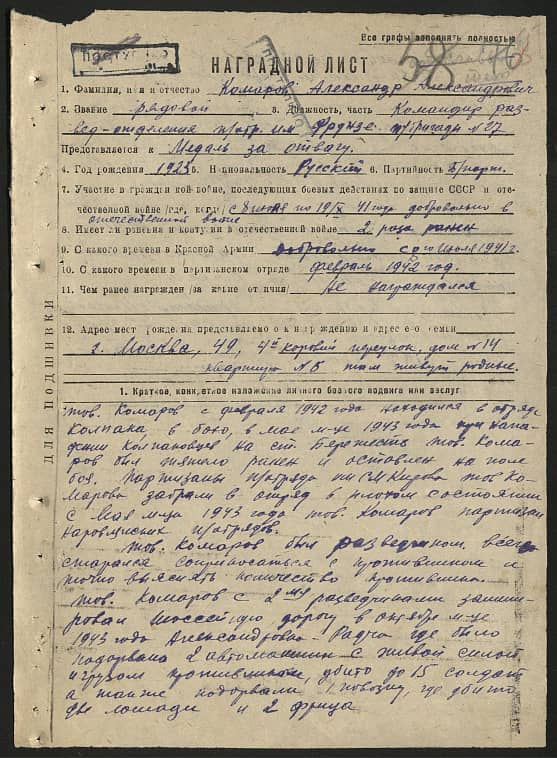 Все графы заполнять полностью
58
НАГРАДНОЙ ЛИСТ
1. Фамилия, имя и отчество Комаров Александр Александрович
2. Звание рядовой 3. Должность, часть Командир раз
вед-отделения п/отр. им Фрунзе п/бригады №27
Представляется к Медаль за отвагу.
4. Год рождения 1923 5. Национальность Русский 6. Партийность Б/парт.
7. Участие в гражданской войне, последующих боевых действиях по защите СССР и оте-
чественной войне (где, когда) с 8 июля по 19/IX 41 года добровольно в
отечественной войне
8. Имеет ли ранения и контузии в отечественной войне 2 раза ранен
9. С какого времени в Красной Армии добровольно с июля 1941 г.
10. С какого времени в партизанском отряде февраль 1942 год.
11. Чем ранее награжден (за какие отличия) Не награждался
12. Адрес место рождения представляемого к награждению и адрес его семьи
г. Москва, 49, 4й коровий переулок, дом №14
квартира №6 там живут родные.
ДЛЯ ПОДШИВКИ
1. Краткое, конкретное изложение личного боевого подвига или заслуг
тов. Комаров с февраля 1942 года находился в отряде
Колпака, в бою, в мае м-це 1943 года при напа-
дении Колпаковцев на ст. Бережесть тов. Кома-
ров был тяжело ранен и оставлен на поле
боя. Партизаны п/отряда им Кирова тов Ко-
марова забрали в отряд в плохом состоянии
с мая м-ца 1943 года тов. Комаров партизан
Наровлянских п/отрядов.
Тов. Комаров был разведчиком. всегда
старался соприкасаться с противником и
точно выяснять количество противника.
тов. Комаров с 2мя разведчиками замини-
ровал шоссейную дорогу в октябре м-це
1943 года Александровка - Радча где было
подорвано 2 автомашины с живой силой
и грузом противника, убито до 15 солдат
а также подорвали 1 повозку, где убито
две лошади и 2 фрица